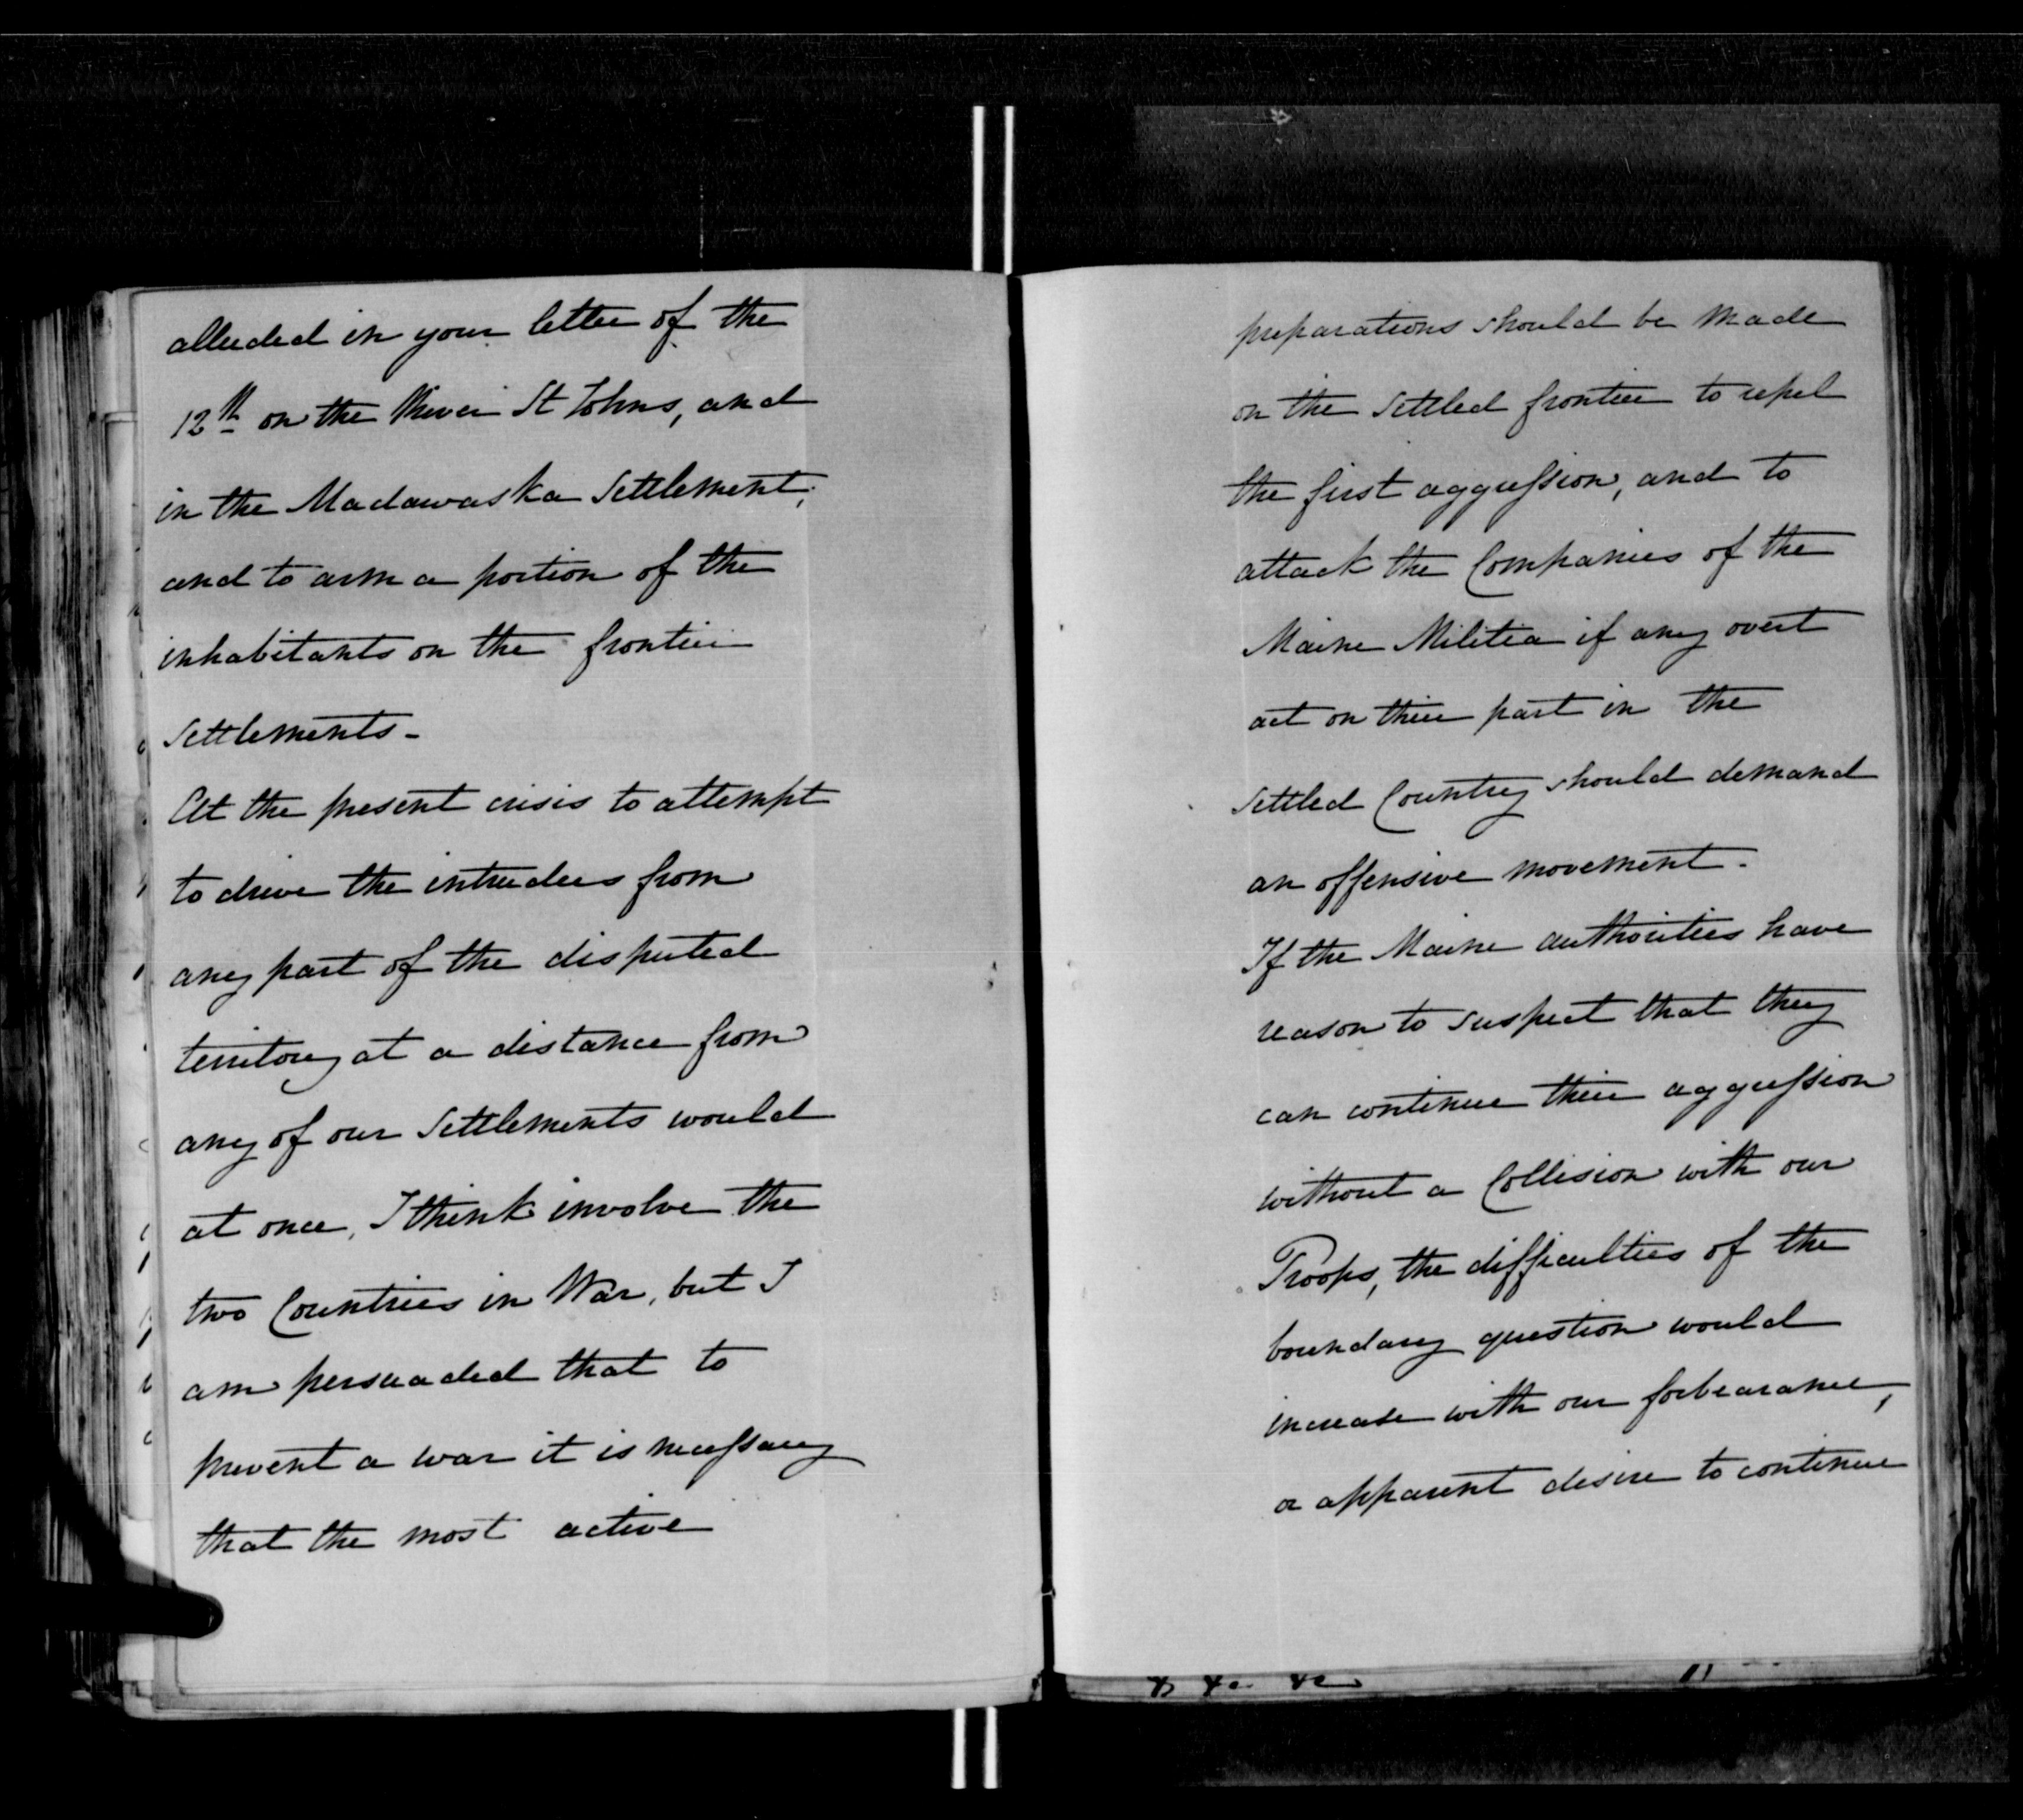 alluded in your letter of the
12th on the River St Johns, and
in the Madawaska Settlement,
and to arm a portion of the
inhabitants on the frontier
Settlements -
At the present crisis to attempt
to drive the intruders from
any part of the disputed
territory at a distance from
any of our Settlements would
at once, I think involve the
two Countries in War, but I
am persuaded that to
prevent a war it is necessary
that the most active
preparations should be made
on the Settled frontier to repel
the first aggression, and to
attack the Companies of the
Maine Militia if any overt
act on their part in the
Settled Country should demand
an offensive movement.
If the Maine authorities have
reason to suspect that they
can continue their aggression
without a Collision with our
Troops, the difficulties of the
boundary question would
increase with our forbearance,
or apparent desire to continue